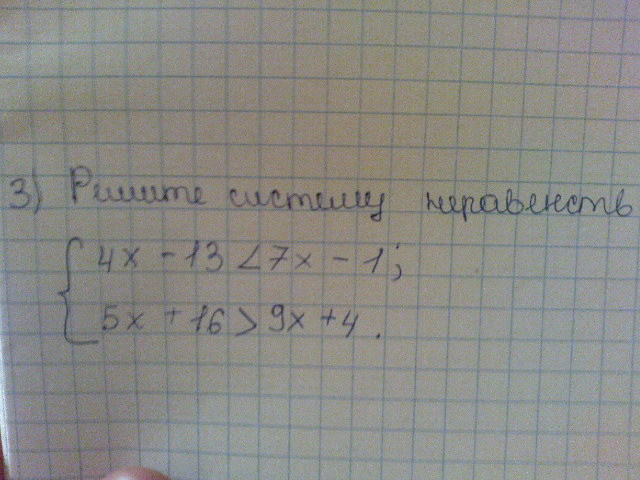 3) Решите систему неравенств
4x - 13 < 7x - 1;
5x + 16 > 9x + 4.